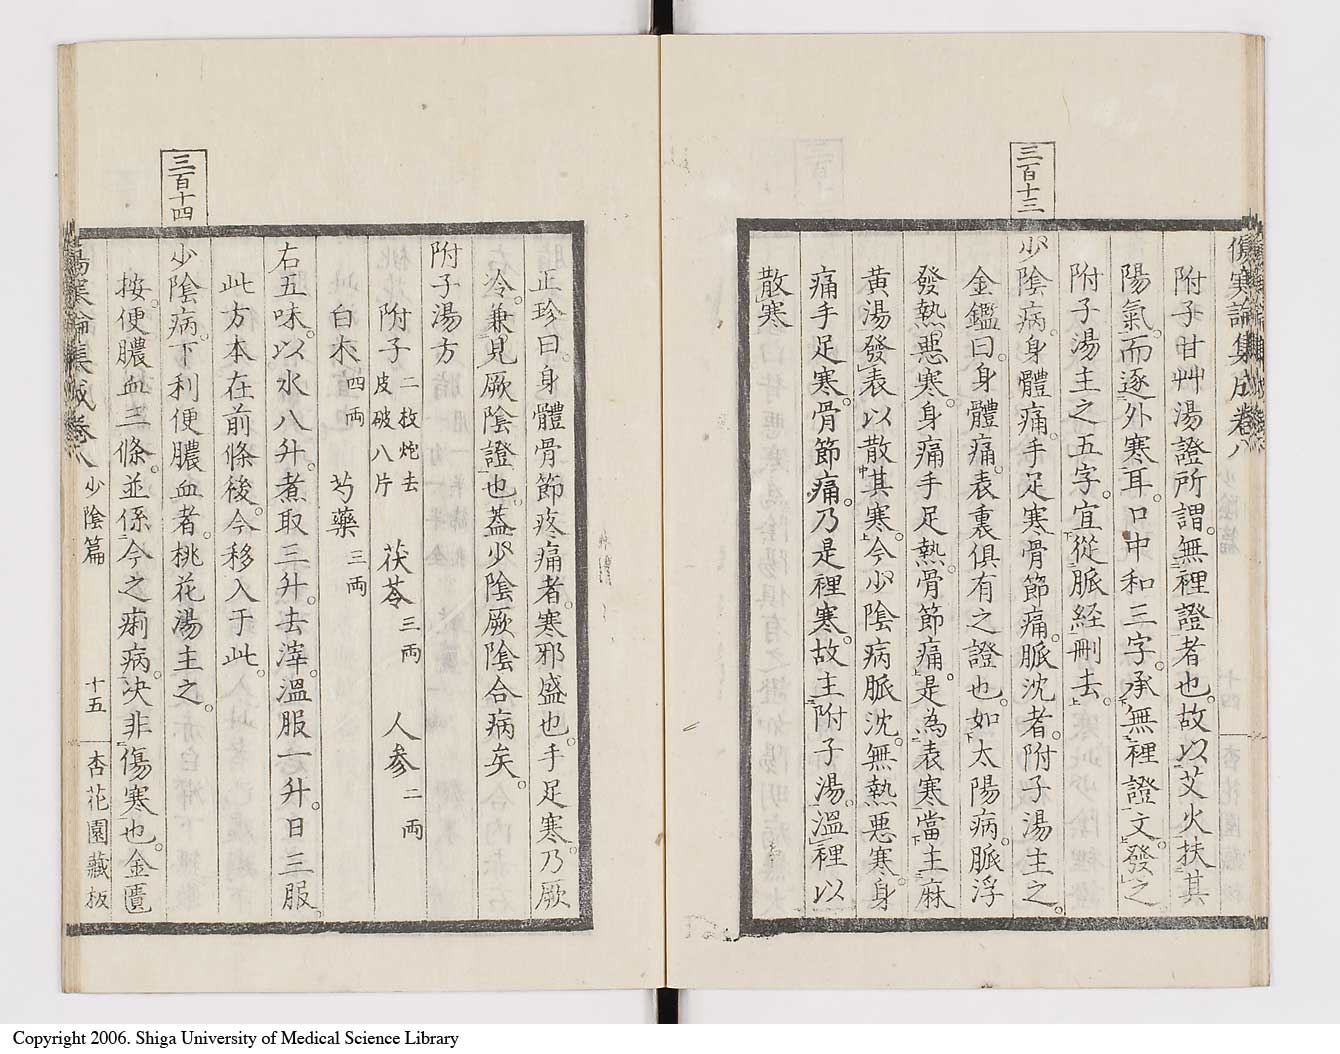 三百十三
傷寒論集成卷八
附子甘艸湯證所謂無裡證者也故以艾火扶其
陽氣而逐外寒耳口中和三字承無裡證文發之
附子湯主之五字宜從脈経刪去
少陰病身體痛手足寒骨節痛脈沈者附子湯主之
金鑑曰身體痛表裏俱有之證也如太陽病脈浮
發熱惡寒身痛手足熱骨節痛是為表寒當主麻
黄湯發表以散其寒今少陰病脈沈無熱惡寒身
痛手足寒骨節痛乃是裡寒故主附子湯溫裡以
散寒
三百十四
正珍曰身體骨節疼痛者寒邪盛也手足寒乃厥
冷兼見厥陰證也蓋少陰厥陰合病矣
附子湯方
附子二枚炮去皮破八片 茯苓三両 人参二両
白朮四両 芍藥三両
右五味以水八升煮取三升去滓溫服一升日三服
此方本在前條後今移入于此
少陰病下利便膿血者桃花湯主之
按便膿血三條並係今之痢病决非傷寒也金匱
傷寒論集成卷八 少陰篇 十五 杏花園藏板
Copyright 2006. Shiga University of Medical Science Library